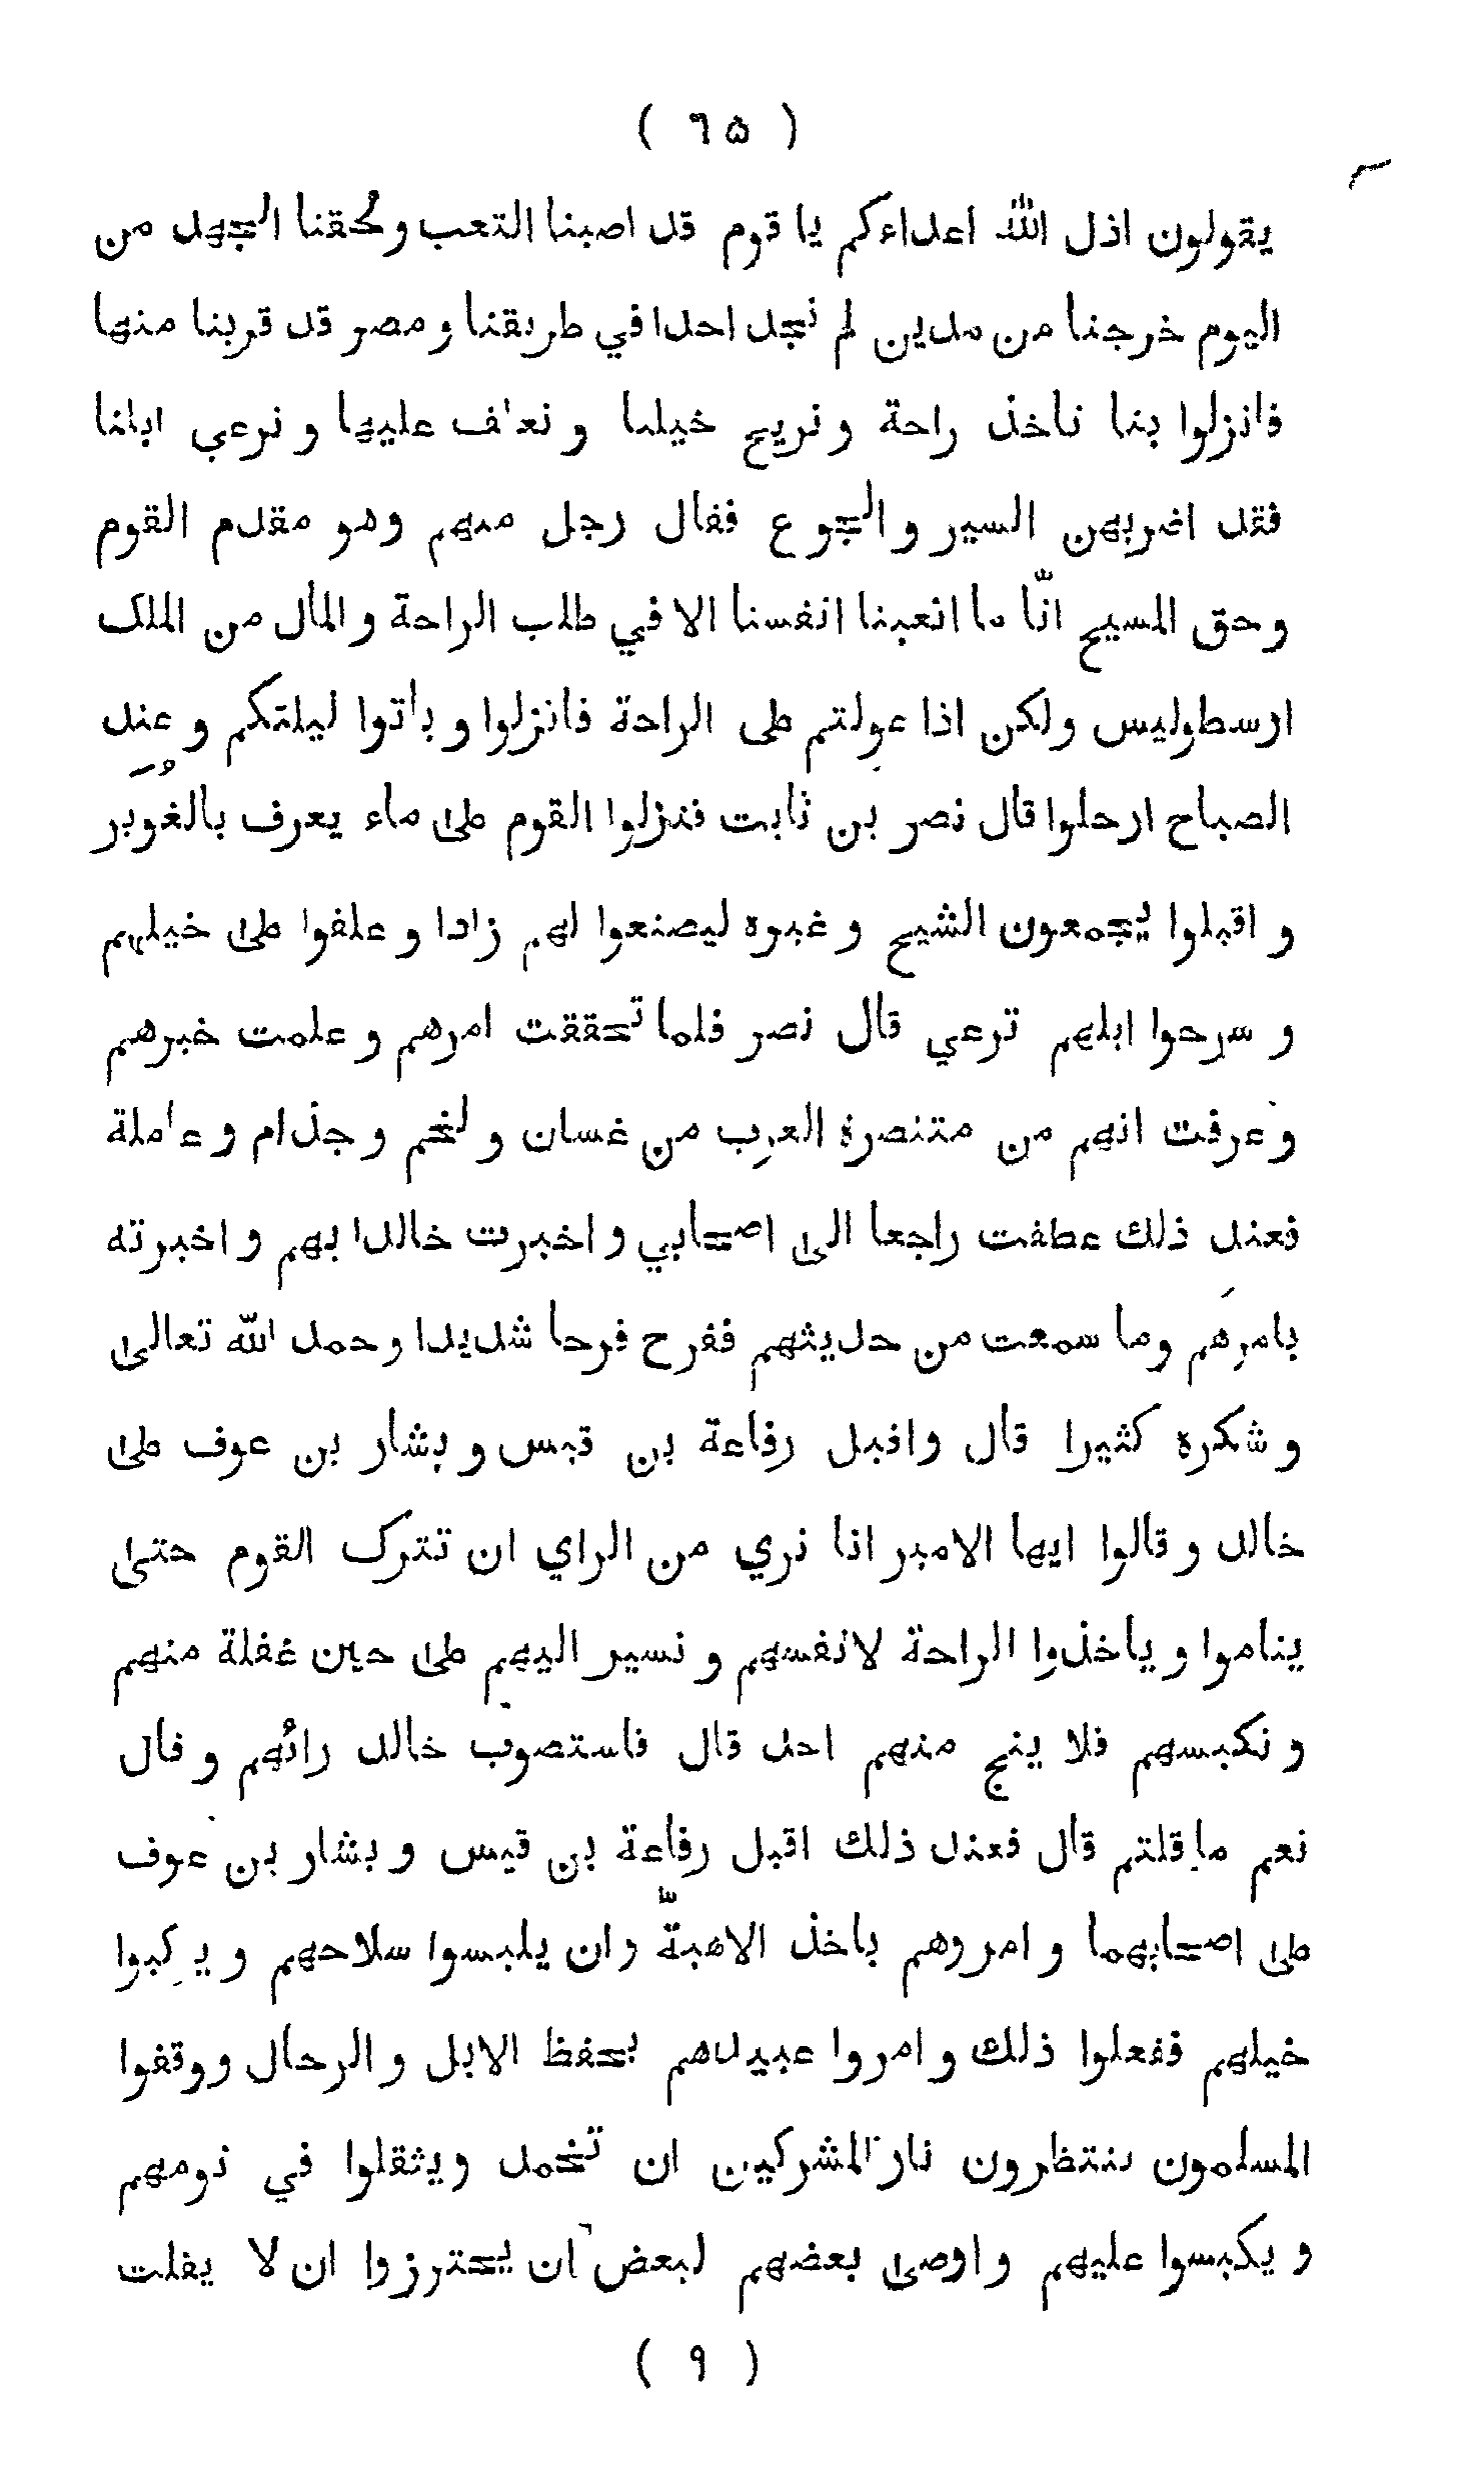 ( ٦٥ )
يقولون اذل الله اعداءكم يا قوم قد اصبنا التعب ولحقنا الجهد من
اليوم خرجنا من مدين لم نجد احدا في طريقنا و مصر قد قربنا منها
فانزلوا بنا ناخذ راحة و نريح خيلنا و نعلف عليها و نرعي ابلنا
فقد اضربهن السير و الجوع فقال رجل منهم وهو مقدم القوم
و حق المسيح انّا ما اتعبنا انفسنا الا في طلب الراحة و المال من الملك
ارسطوليس ولكن اذا عولتم علی الراحة فانزلوا و باتوا ليلتكم و عند
الصباح ارحلوا قال نصر بن ثابت فنزلوا القوم علی ماء يعرف بالغوير
و اقبلوا يجمعون الشيح و غيره ليصنعوا لهم زادا و علفوا علی خيلهم
و سرحوا ابلهم ترعي قال نصر فلما تحققت امرهم و علمت خبرهم
و عرفت انهم من متنصرة العرب من غسان و لخم و جذام و عاملة
فعند ذلك عطفت راجعا الی اصحابي و اخبرت خالدا بهم و اخبرته
بامرهم وما سمعت من حديثهم ففرح فرحا شديدا و حمد الله تعالی
و شكره كثيرا قال واقبل رفاعة بن قيس و بشار بن عوف علی
خالد و قالوا ايها الامير انا نري من الراي ان تترك القوم حتی
يناموا و ياخذوا الراحة لانفسهم و نسير اليهم علی حين غفلة منهم
و نكبسهم فلا ينج منهم احد قال فاستصوب خالد رائهم و قال
نعم ما قلتم قال فعند ذلك اقبل رفاعة بن قيس و بشار بن عوف
علی اصحابهما و امروهم باخذ الاهبةّ وان يلبسوا سلاحهم و يركبوا
خيلهم ففعلوا ذلك و امروا عبيدهم بحفظ الابل و الرحال ووقفوا
المسلمون ينتظرون نار المشركين ان تخمد ويثقلوا في نومهم
و يكبسوا عليهم و اوصی بعضهم لبعض ان يحترزوا ان لا يفلت
( ٩ )